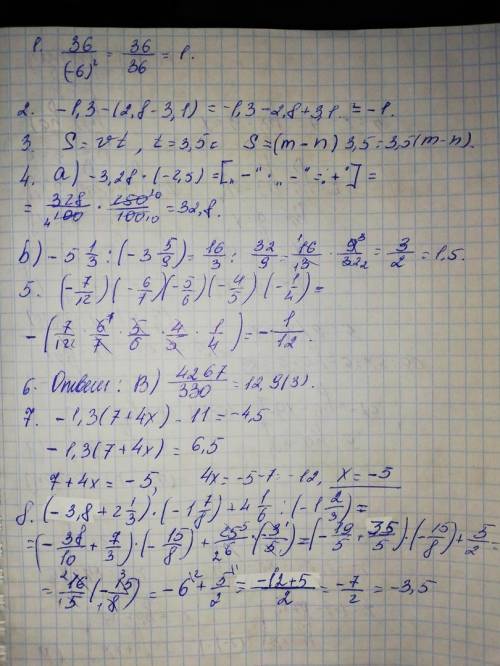 1. 36/(-6)² = 36/36 = 1.
2. -1,3-(2,8-3,1) = -1,3-2,8+3,1 = -1.
3. S=vt, t=3,5 S=(m-n) 3,5=3,5(m-n).
4. a) -3,28·(-2,5) = [„-"·„-"=„+"] =
= 328/100 · 150/100 = 32,8.
b) -5 1/3 : (-3 5/9) = 16/3 : 32/9 = 16/3 · 9/32 = 3/2 = 1,5.
5. (-7/12)(-6/7)(-5/6)(-4/5)(-1/4) =
-(7/12 · 6/7 · 5/6 · 4/5 · 1/4) = -1/12.
6. Ответ: B) 4267/330 = 12,9(3).
7. -1,3(7+4x) - 11 = -4,5
-1,3(7+4x) = 6,5
7+4x = -5, 4x = -5-7 = -12, x = -5
8. (-3,8+2 1/3)·(-1 7/8)+4 1/6 : (-1 2/3) =
= (-38/10 + 7/3)·(-15/8) + 25/6 · (-3/5) = (-19/5 + 35/5)·(-15/8) + 5/2 =
= 16/5 (-15/8) = -6 + 5/2 = -12+5/2 = -7/2 = -3,5